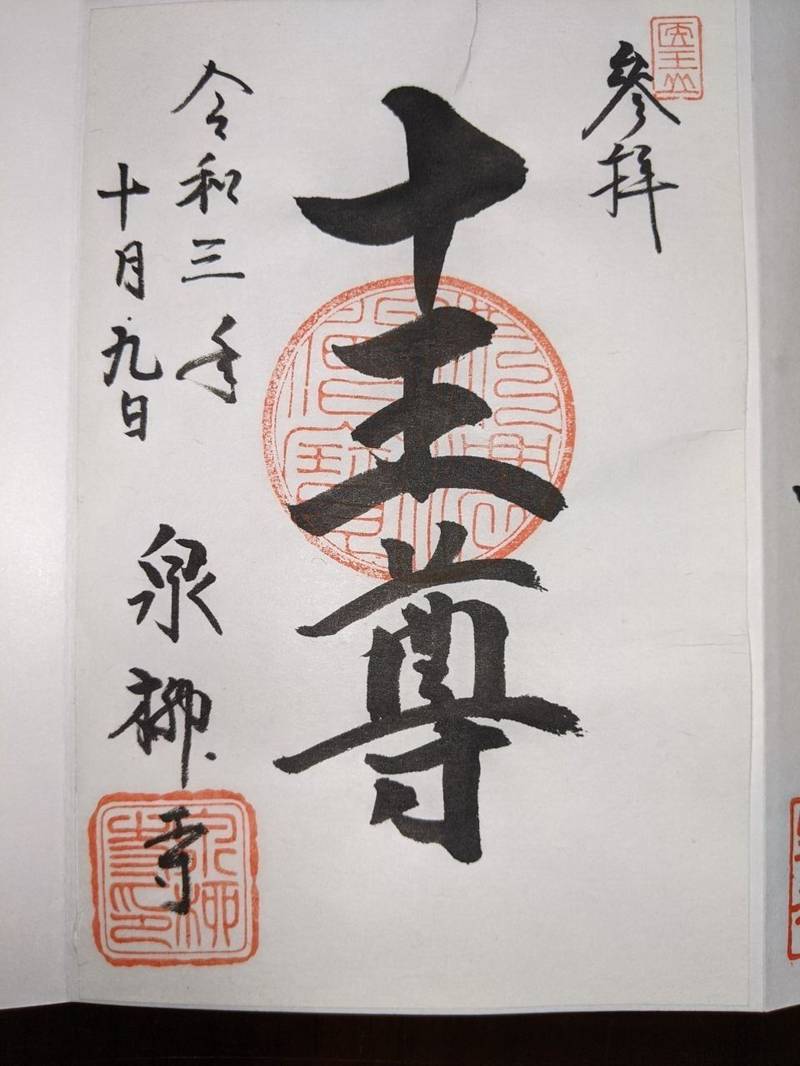 医王山
参拝
十王尊
令和三年
十月九日
泉柳寺
泉柳寺印